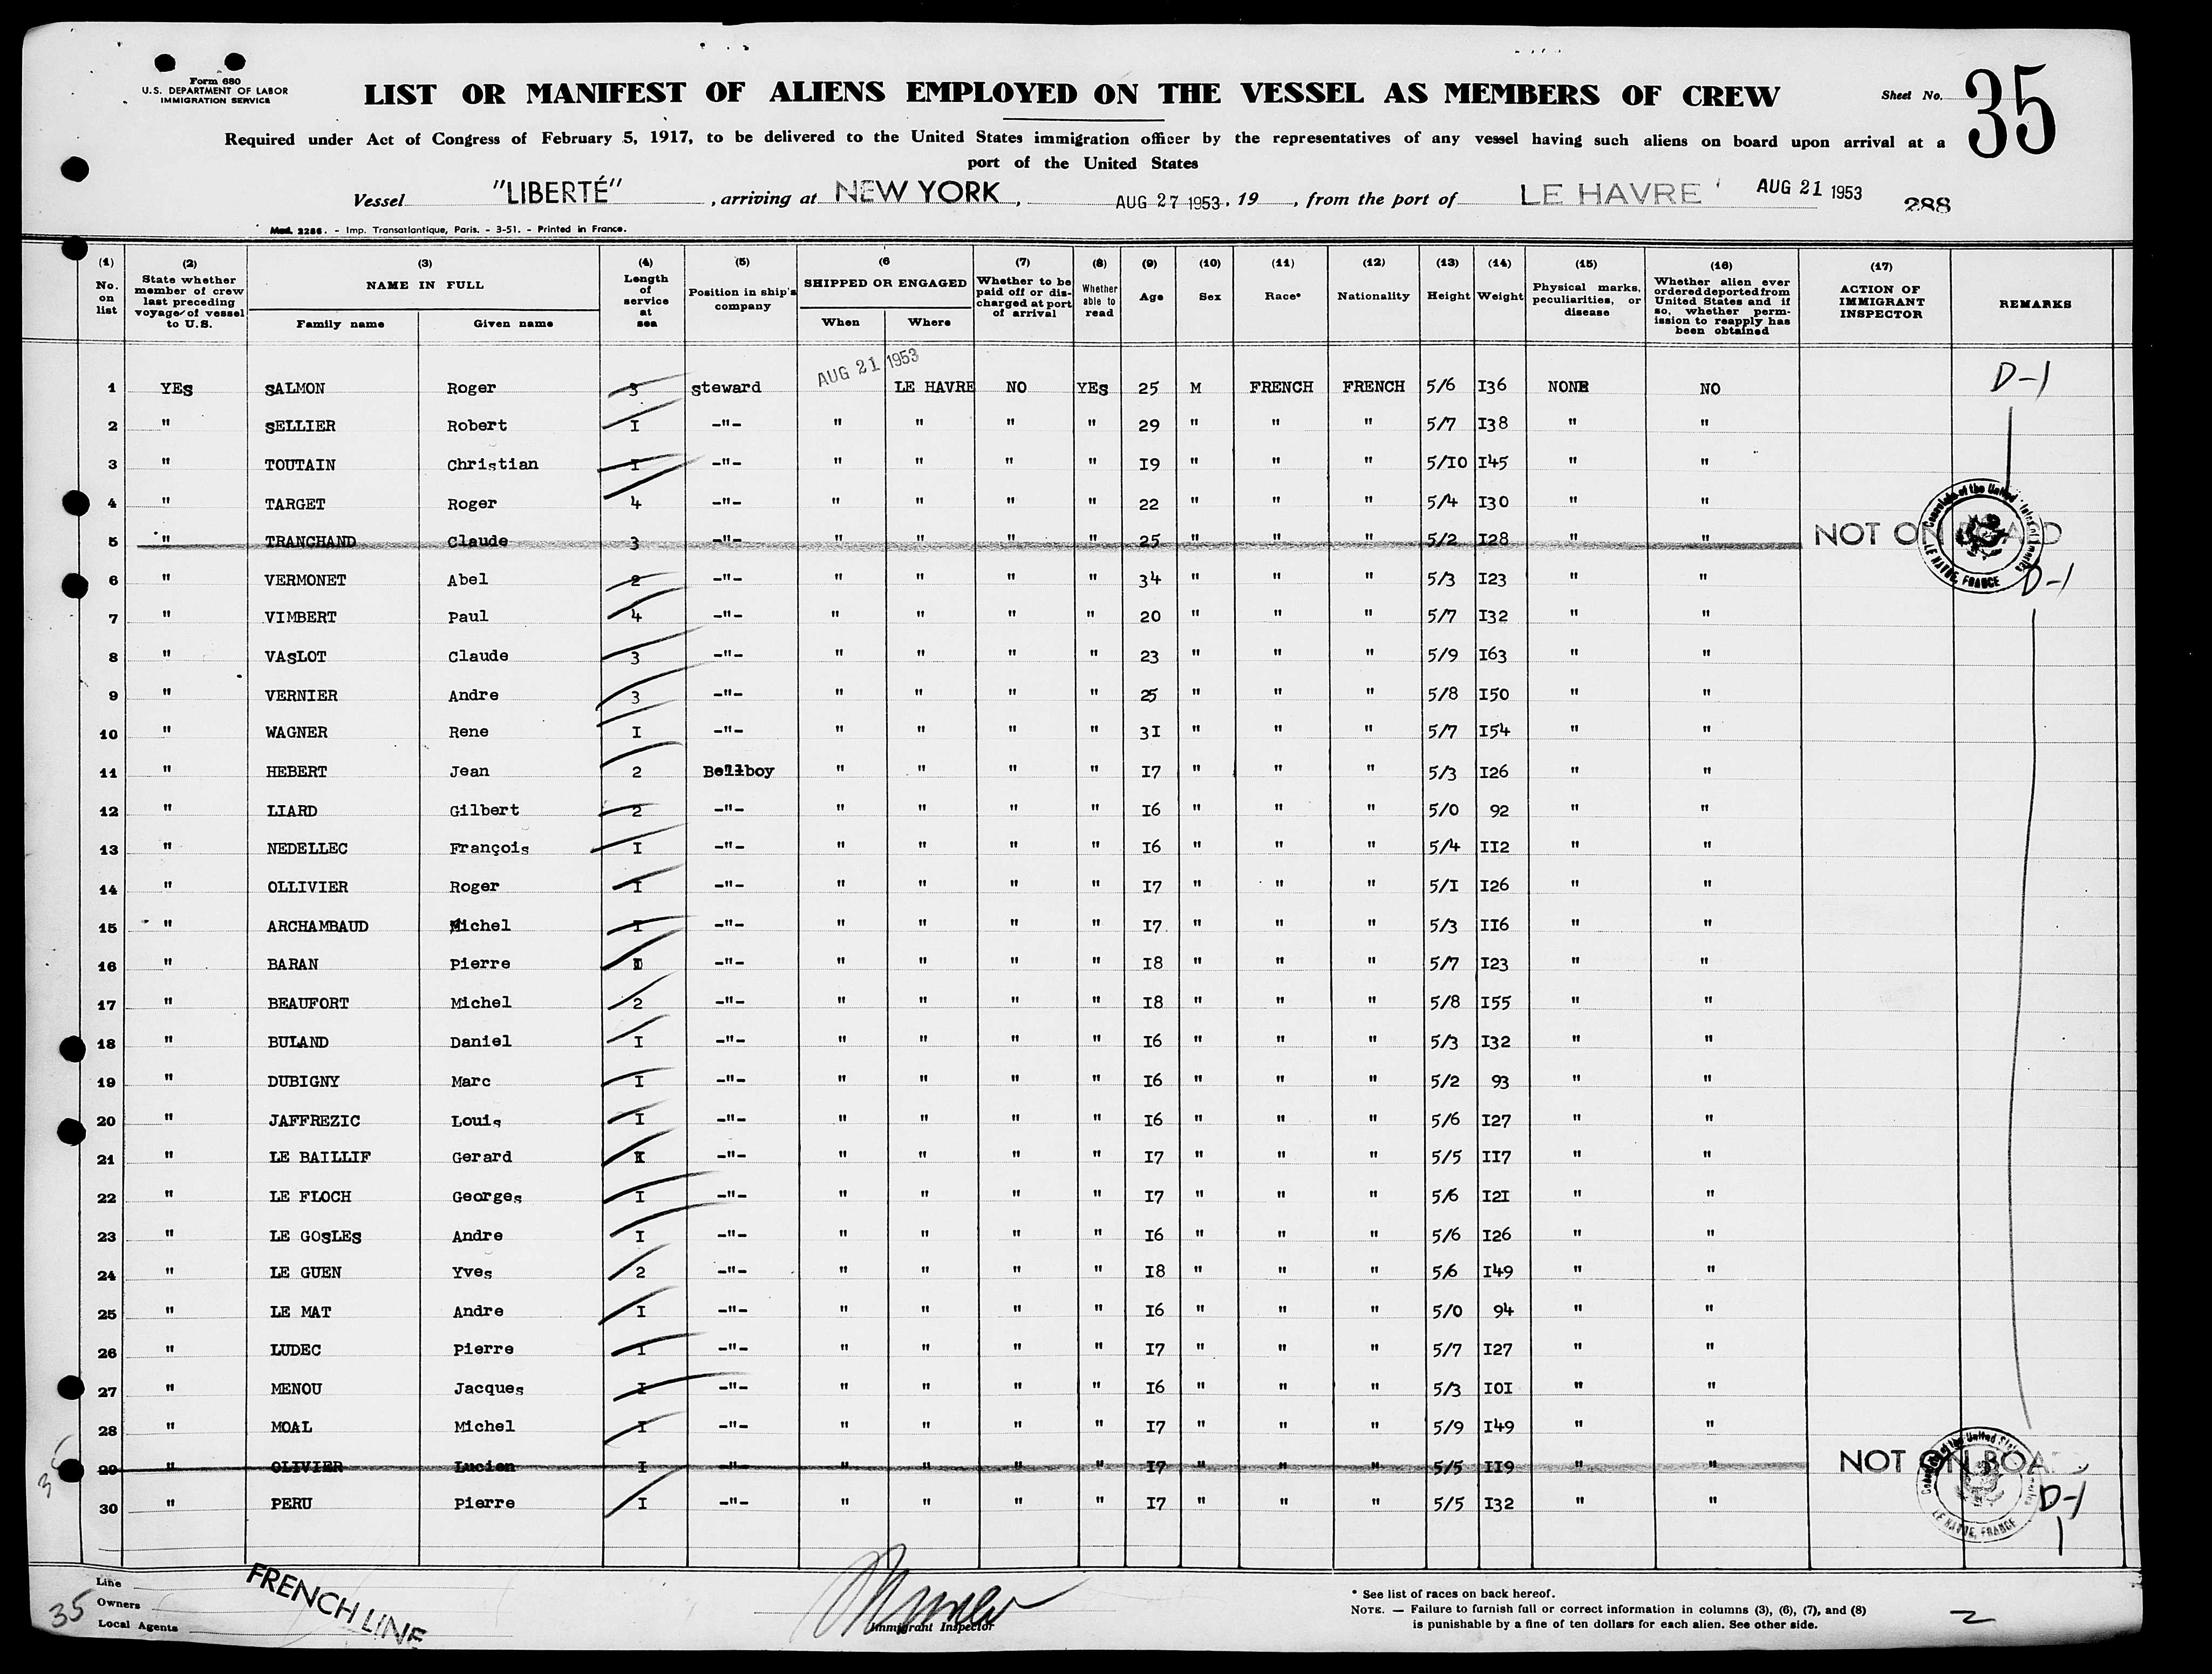 Form 680
U.S. DEPARTMENT OF LABOR
IMMIGRATION SERVICE
LIST OR MANIFEST OF ALIENS EMPLOYED ON THE VESSEL AS MEMBERS OF CREW
Sheet No. 35
Required under Act of Congress of February 5, 1917, to be delivered to the United States immigration officer by the representatives of any vessel having such aliens on board upon arrival at a
port of the United States
Vessel "LIBERTÉ", arriving at NEW YORK, AUG 27 1953, 19 , from the port of LE HAVRE AUG 21 1953 288
Mod. 2286. - Imp. Transatlantique, Paris. - 3-51. - Printed in France.
(1) No. on list (2) State whether member of crew last preceding voyage of vessel to U.S. (3) NAME IN FULL Family name Given name (4) Length of service at sea (5) Position in ship's company (6 SHIPPED OR ENGAGED When Where (7) Whether to be paid off or discharged at port of arrival (8) Whether able to read (9) Age (10) Sex (11) Race* (12) Nationality (13) Height (14) Weight (15) Physical marks, peculiarities, or disease (16) Whether alien ever ordered deported from United States and if so, whether permission to reapply has been obtained (17) ACTION OF IMMIGRANT INSPECTOR REMARKS
1 YEs SALMON Roger 3 steward AUG 21 1953 LE HAVRE NO YEs 25 M FRENCH FRENCH 5/6 I36 NONE NO D-1
2 " sELLIER Robert I -"- " " " " 29 " " " 5/7 I38 " "
3 " TOUTAIN Christian I -"- " " " " I9 " " " 5/I0 I45 " "
4 " TARGET Roger 4 -"- " " " " 22 " " " 5/4 I30 " "
5 " TRANCHAND Claude 3 -"- " " " " 25 " " " 5/2 I28 " " NOT ON BOARD
6 " VERMONET Abel 2 -"- " " " " 34 " " " 5/3 I23 " " D-1
7 " VIMBERT Paul 4 -"- " " " " 20 " " " 5/7 I32 " "
8 " VAsLOT Claude 3 -"- " " " " 23 " " " 5/9 I63 " "
9 " VERNIER Andre 3 -"- " " " " 25 " " " 5/8 I50 " "
10 " WAGNER Rene I -"- " " " " 3I " " " 5/7 I54 " "
11 " HEBERT Jean 2 Bellboy " " " " I7 " " " 5/3 I26 " "
12 " LIARD Gilbert 2 -"- " " " " I6 " " " 5/0 92 " "
13 " NEDELLEC François I -"- " " " " I6 " " " 5/4 II2 " "
14 " OLLIVIER Roger I -"- " " " " I7 " " " 5/I I26 " "
15 " ARCHAMBAUD Michel I -"- " " " " I7 " " " 5/3 II6 " "
16 " BARAN Pierre I -"- " " " " I8 " " " 5/7 I23 " "
17 " BEAUFORT Michel 2 -"- " " " " I8 " " " 5/8 I55 " "
18 " BULAND Daniel I -"- " " " " I6 " " " 5/3 I32 " "
19 " DUBIGNY Marc I -"- " " " " I6 " " " 5/2 93 " "
20 " JAFFREZIC Louis I -"- " " " " I6 " " " 5/6 I27 " "
21 " LE BAILLIF Gerard I -"- " " " " I7 " " " 5/5 II7 " "
22 " LE FLOCH Georges I -"- " " " " I7 " " " 5/6 I2I " "
23 " LE GOsLEs Andre I -"- " " " " I6 " " " 5/6 I26 " "
24 " LE GUEN Yves 2 -"- " " " " I8 " " " 5/6 I49 " "
25 " LE MAT Andre I -"- " " " " I6 " " " 5/0 94 " "
26 " LUDEC Pierre I -"- " " " " I7 " " " 5/7 I27 " "
27 " MENOU Jacques I -"- " " " " I6 " " " 5/3 I0I " "
28 " MOAL Michel I -"- " " " " I7 " " " 5/9 I49 " "
29 " OLIVIER Lucien I -"- " " " " I7 " " " 5/5 II9 " " NOT ON BOARD
30 " PERU Pierre I -"- " " " " I7 " " " 5/5 I32 " " D-1
Consulate of the United States of America LE HAVRE, FRANCE
Consulate of the United States of America LE HAVRE, FRANCE
35
Line
Owners
Local Agents
FRENCH LINE
35
Immigrant Inspector
* See list of races on back hereof.
NOTE. — Failure to furnish full or correct information in columns (3), (6), (7), and (8)
is punishable by a fine of ten dollars for each alien. See other side.
2